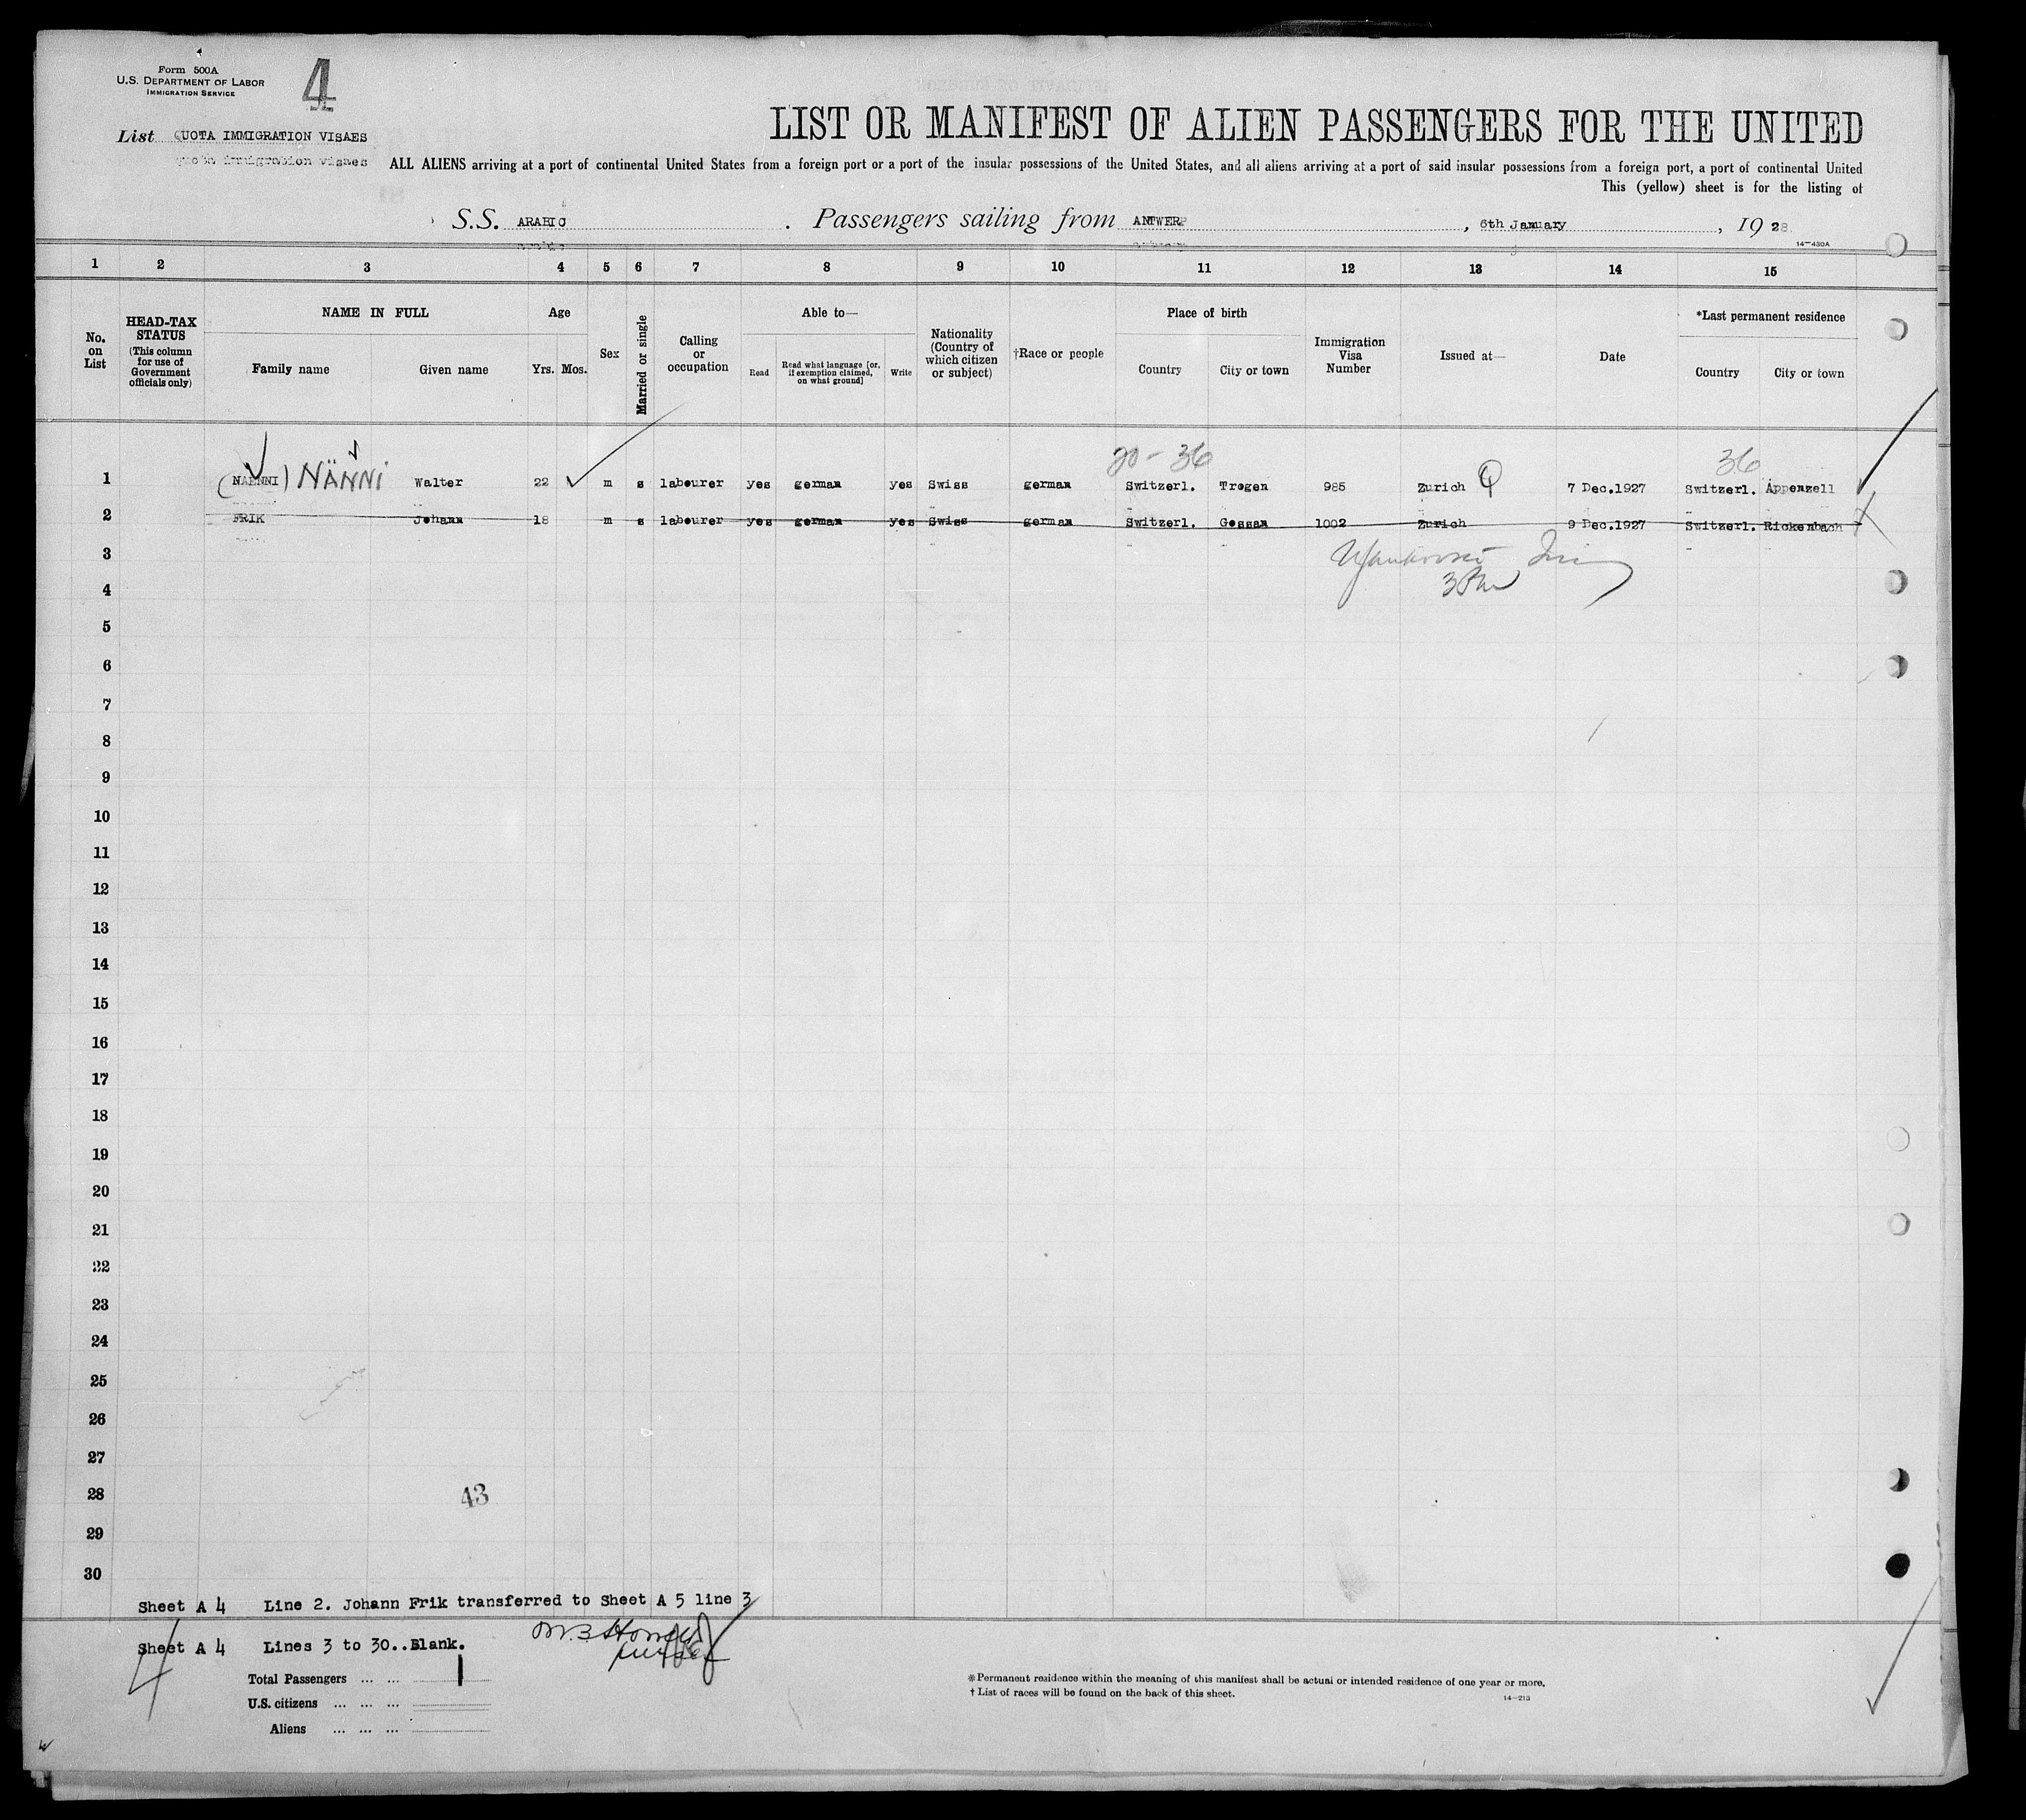 Form 500A
U.S. DEPARTMENT OF LABOR
IMMIGRATION SERVICE
4
List QUOTA IMMIGRATION VISAES
LIST OR MANIFEST OF ALIEN PASSENGERS FOR THE UNITED
ALL ALIENS arriving at a port of continental United States from a foreign port or a port of the insular possessions of the United States, and all aliens arriving at a port of said insular possessions from a foreign port, a port of continental United
This (yellow) sheet is for the listing of
S.S. ARABIC . Passengers sailing from ANTWERP , 6th January , 19 28.
14-430A
1 2 3 4 5 6 7 8 9 10 11 12 13 14 15
No. on List
HEAD-TAX STATUS (This column for use of Government officials only)
NAME IN FULL
Family name Given name
Age
Yrs. Mos.
Sex
Married or single
Calling or occupation
Able to—
Read Read what language [or, if exemption claimed, on what ground] Write
Nationality (Country of which citizen or subject)
†Race or people
Place of birth
Country City or town
Immigration Visa Number
Issued at—
Date
*Last permanent residence
Country City or town
20 - 36 36
1 (NAENNI) NÄNNI Walter 22 m s labourer yes german yes Swiss german Switzerl. Trogen 985 Zurich Q 7 Dec.1927 Switzerl. Appenzell
2 FRIK Johann 18 m s labourer yes german yes Swiss german Switzerl. Gossan 1002 Zurich 9 Dec.1927 Switzerl. Rickenbach
3
4
5
6
7
8
9
10
11
12
13
14
15
16
17
18
19
20
21
22
23
24
25
26
27
28 43
29
30
Sheet A 4 Line 2. Johann Frik transferred to Sheet A 5 line 3
Sheet A 4 Lines 3 to 30..Blank.
4
Total Passengers ... ... 1
U.S. citizens ... ... ...
Aliens ... ... ...
*Permanent residence within the meaning of this manifest shall be actual or intended residence of one year or more.
† List of races will be found on the back of this sheet.
14-213